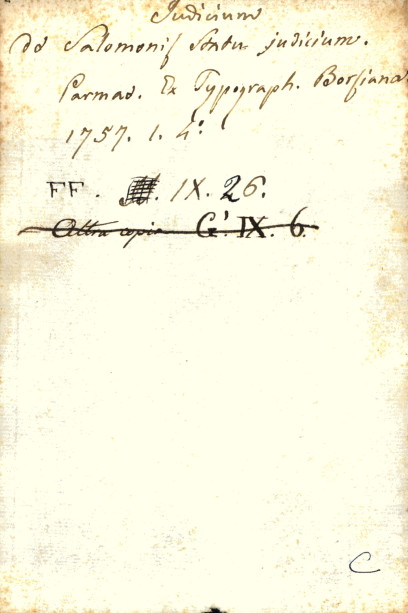 Judicium
de Salomonis Statu judicium.
Parmae. Ex Typograph. Borsiana
1757. 1. 4.º
FF. IX. 26.
Altra copia G'. IX. 6.
C